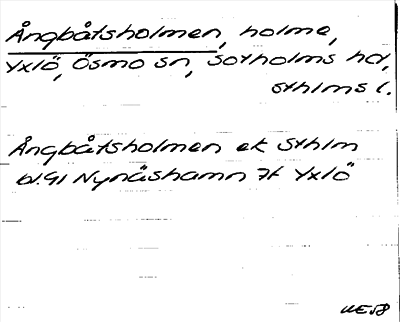 Ångbåtsholmen, holme,
Yxlö, Ösmo sn, Sotholms hd,
Sthlms l.
Ångbåtsholmen ek Sthlm
bl. 91 Nynäshamn 7f Yxlö
UE58